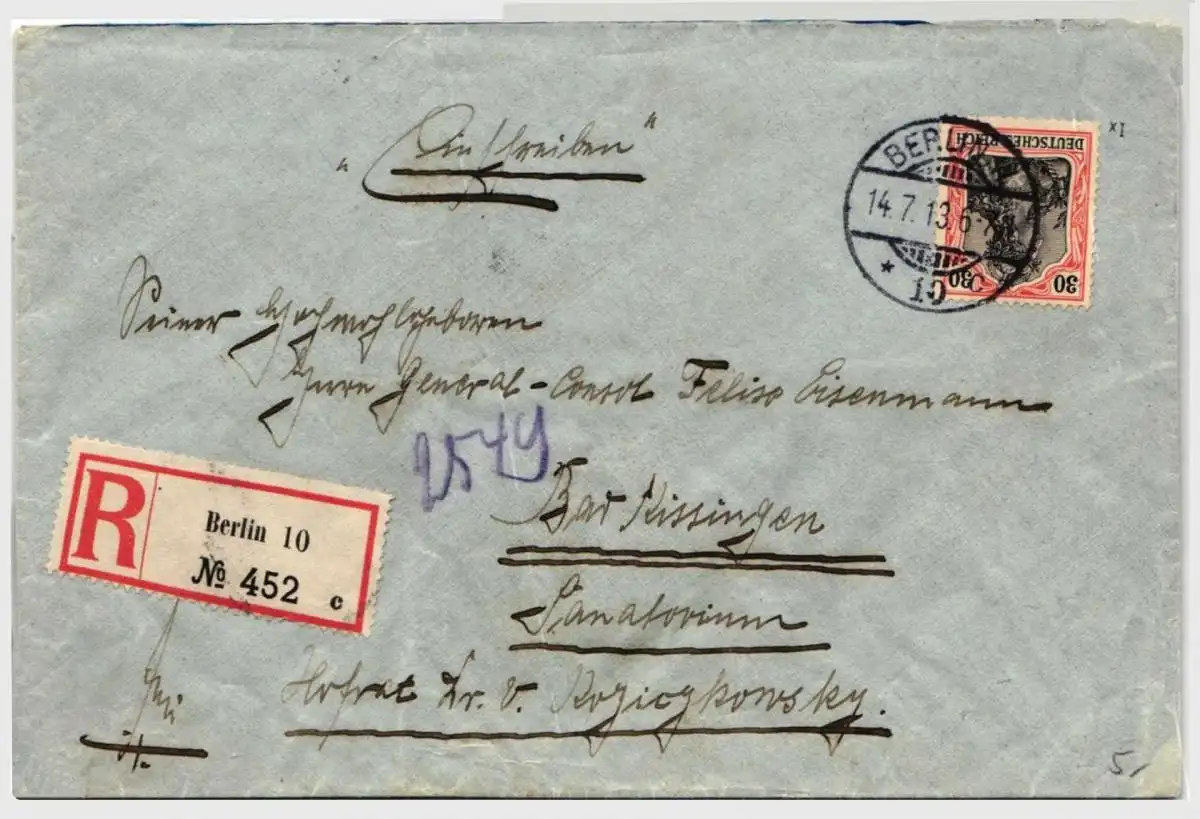 „Einschreiben"
BERLIN
14.7.13.6-7N
* 10 C
DEUTSCHES REICH
30 30
Ix
Seiner Hochwohlgeboren
Herrn General-Consul Felix Eisenmann
2549
Bad Kissingen
Sanatorium
Hofrat Dr. v.
R
Berlin 10
№ 452 c
5,